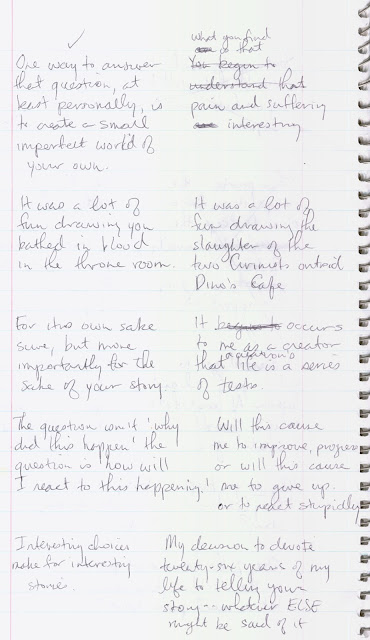 ✓
One way to answer
that question, at
least personally, is
to create a small
imperfect world of
your own.
what you find
is that
You begin to
understand that
pain and suffering
are interesting
It was a lot of
fun drawing you
bathed in blood
in the throne room.
It was a lot of
fun drawing the
slaughter of the
two Cirinists outside
Dino's Cafe
For its own sake
sure, but more
importantly for the
sake of your story.
It begins to occurs
to me as a creator
a person's
that life is a series
of tests.
The question isn't 'why
did this happen' the
question is 'how will
I react to this happening'
Will this cause
me to improve, progress
or will this cause
me to give up.
or to react stupidly
Interesting choices
make for interesting
stories.
My decision to devote
twenty-six years of my
life to telling your
story -- whatever ELSE
might be said of it